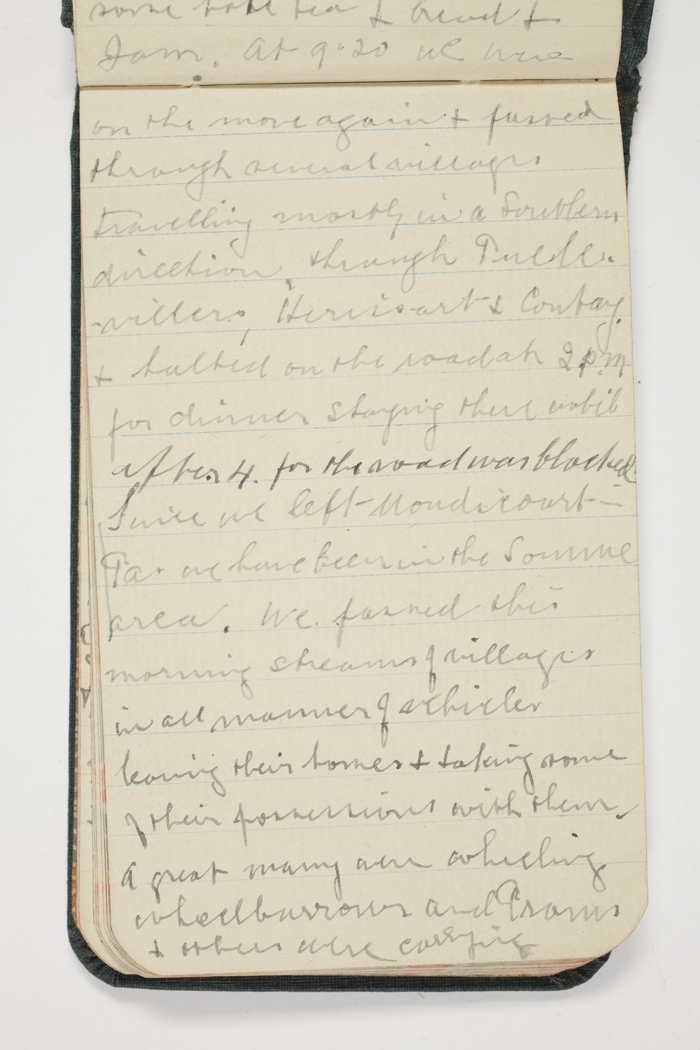 some hot tea & bread &
Jam. At 9.20 we were
on the move again & passed
through several villages
travelling mostly in a Southern
direction, through Puche-
-villers, Herissart & Contay
& halted on the road at 2 p.m
for dinner staying there until
after 4. for the road was blocked
Since we left Mondicourt -
Pas we have been in the Somme
area. We passed this
morning streams of villagers
in all manner of vehicles
leaving their homes & taking some
of their possessions with them.
A great many were wheeling
wheelbarrows and Prams
& others were carrying